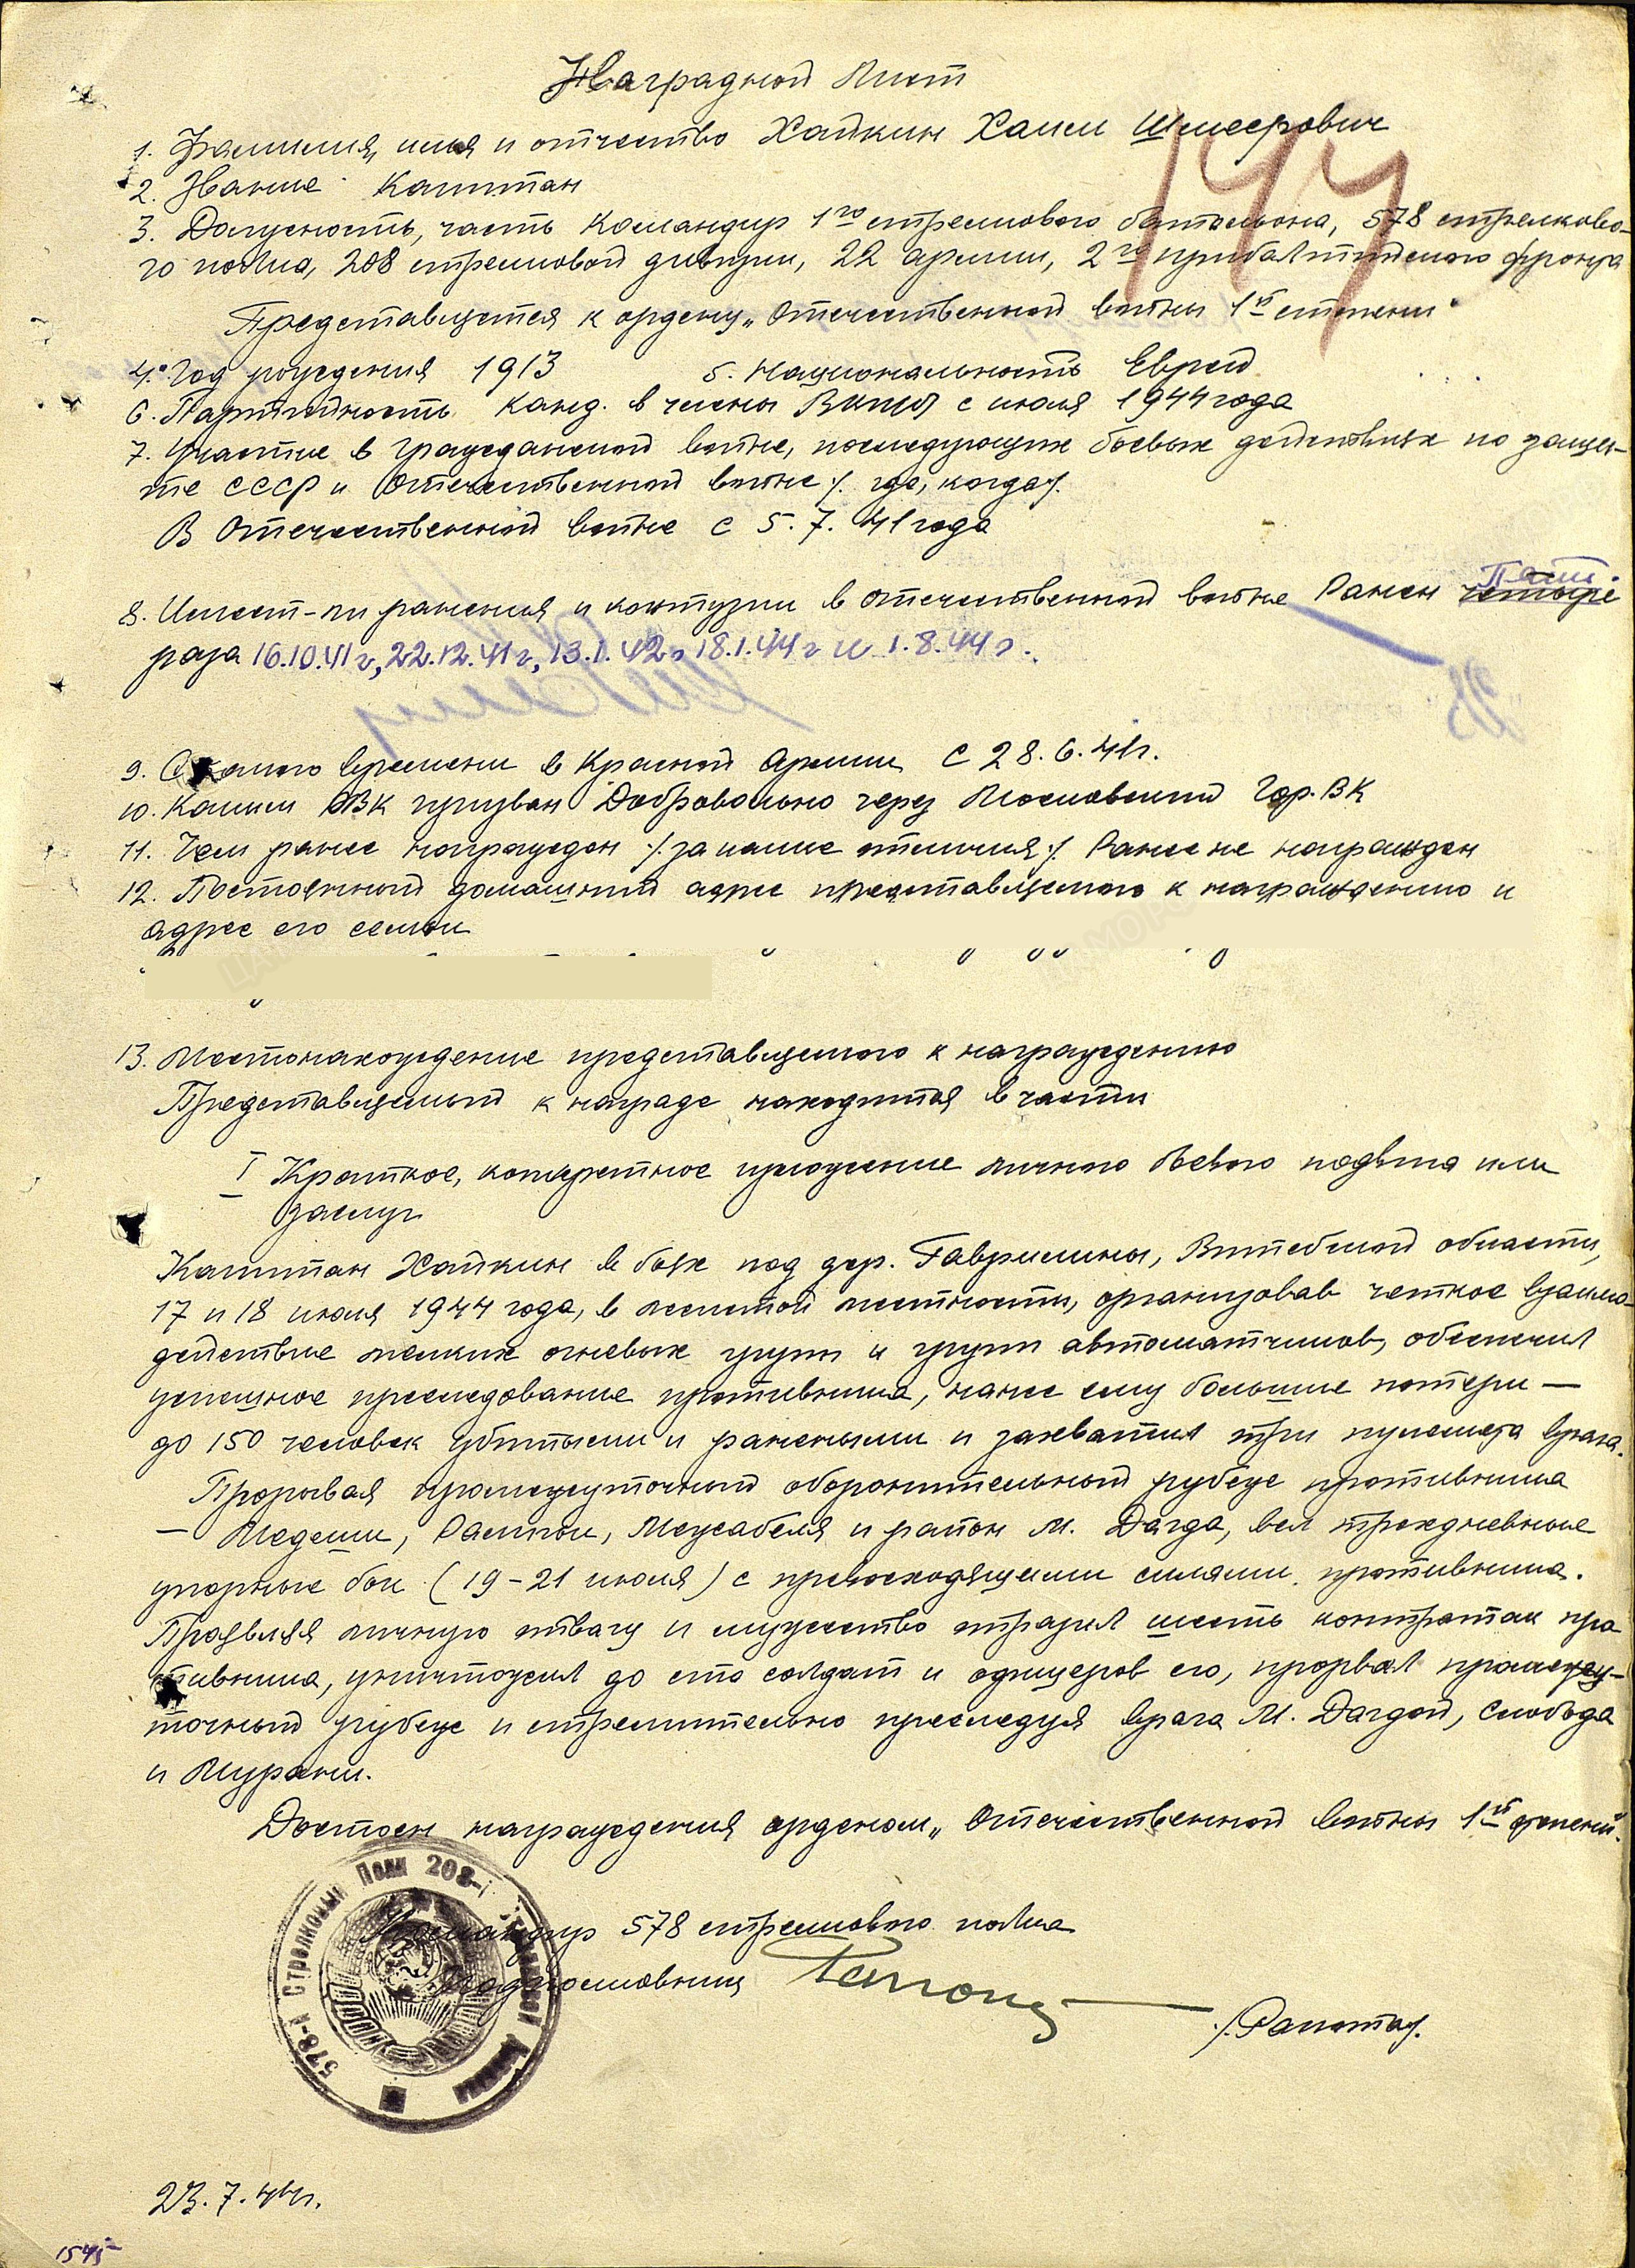 Наградной Лист
1. Фамилия, имя и отчество Хайкин Хаим Шмеерович
2. Звание Капитан
3. Должность, часть Командир 1го стрелкового батальона, 578 стрелково-
го полка, 208 стрелковой дивизии, 22 армии, 2го прибалтийского фронта
Представляется к ордену „Отечественной войны 1й степени"
4. Год рождения 1913 5. Национальность Еврей
6. Партийность Канд. в члены ВКП(б) с июля 1944 года
7. Участие в гражданской войне, последующих боевых действиях по защи-
те СССР и Отечественной войне /. где, когда/.
В Отечественной войне с 5.7.41 года
Пять
8. Имеет-ли ранения и контузии в отечественной войне Ранен четыре
раза 16.10.41г, 22.12.41г, 13.1.42г 18.1.44г и 1.8.44г.
9. С какого времени в Красной Армии с 28.6.41г.
10. Каким РВК призван Добровольно через Московский Гор.ВК
11. Чем ранее награжден /.за какие отличия/. Ранее не награжден
12. Постоянный домашний адрес представляемого к награждению и
адрес его семьи
13. Местонахождение представляемого к награждению
Представляемый к награде находится в части
I Краткое, конкретное изложение личного боевого подвига или
заслуг
Капитан Хайкин в боях под дер. Гаврилины, Витебской области,
17 и 18 июля 1944 года, в лесистой местности, организовав четкое взаимо-
действие мелких огневых групп и групп автоматчиков, обеспечил
успешное преследование противника, нанес ему большие потери —
до 150 человек убитыми и ранеными и захватил три пулемета врага.
Прорывая промежуточный оборонительный рубеж противника
— Медеши, Раслкои, Межабеля и район М. Дагда, вел трехдневные
упорные бои (19-21 июля) с превосходящими силами противника.
Проявляя личную отвагу и мужество отразил шесть контратак про-
тивника, уничтожил до сто солдат и офицеров его, прорвал промежу-
точный рубеж и стремительно преследуя врага М. Дагдой, Слобода
и Мурани.
Достоен награждения орденом „Отечественной войны 1й степени".
Командир 578 стрелкового полка
Подполковник /.Рапота/.
578-й Стрелковый Полк 208-й Стрелковой Дивизии
23.7.44г.
1545